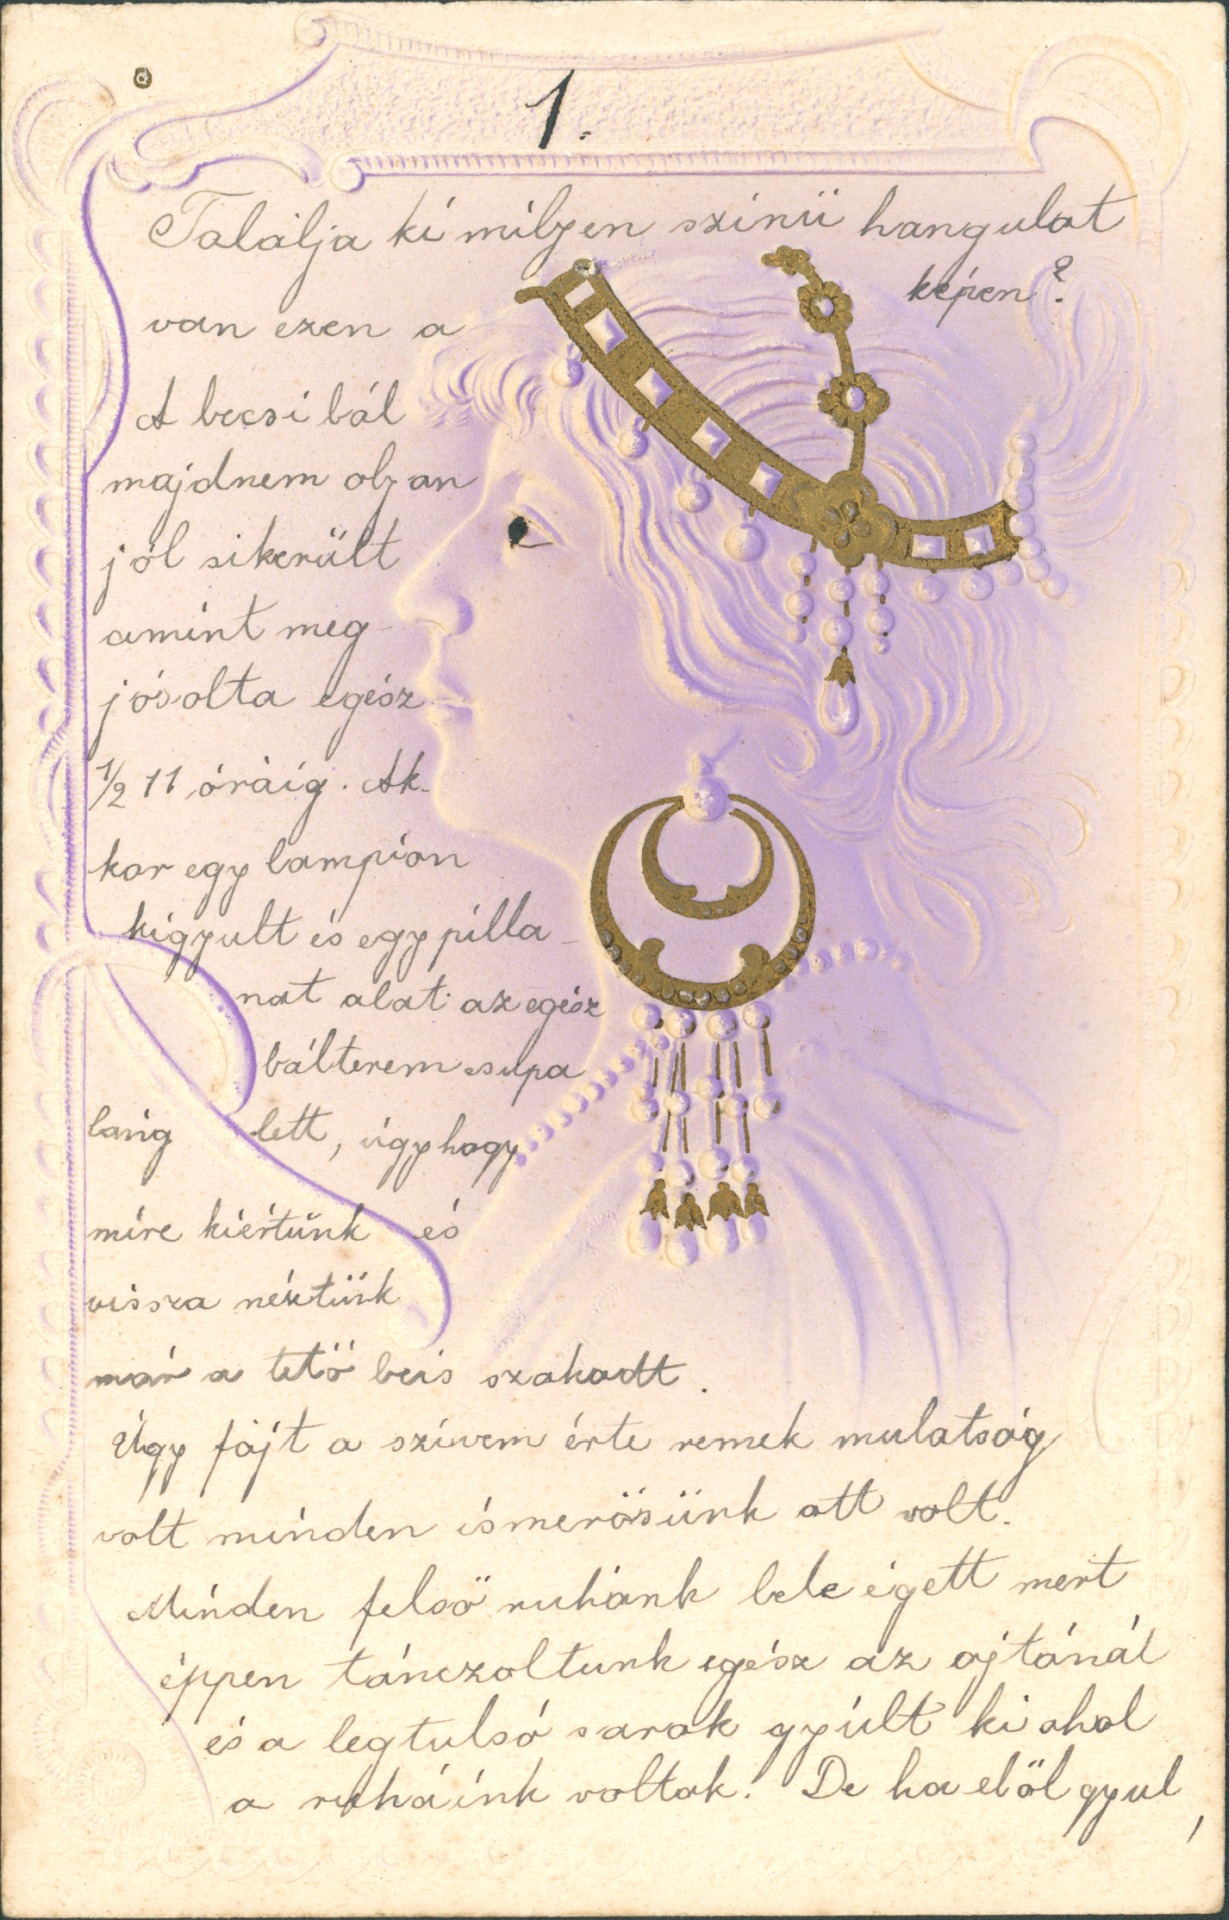 1.
Talalja ki milyen szinü hangulat
van ezen a képen?
A becsi bál
majdnem olyan
jól sikerült
amint meg-
jósolta egész
1/2 11 óráig. Ak-
kor egy lampion
kigyult és egy pilla-
nat alat az egész
bálterem csupa
láng lett, úgyhogy
mire kiértünk és
vissza néztünk
már a tető beis szakadt.
Úgy fájt a szivem érte remek mulatság
volt minden ismerősünk ott volt.
Minden felső ruhánk bele égett mert
éppen tánczoltunk egész az ajtónál
és a legtulsó sarok gyúlt ki ahol
a ruháink voltak! De ha elöl gyul,